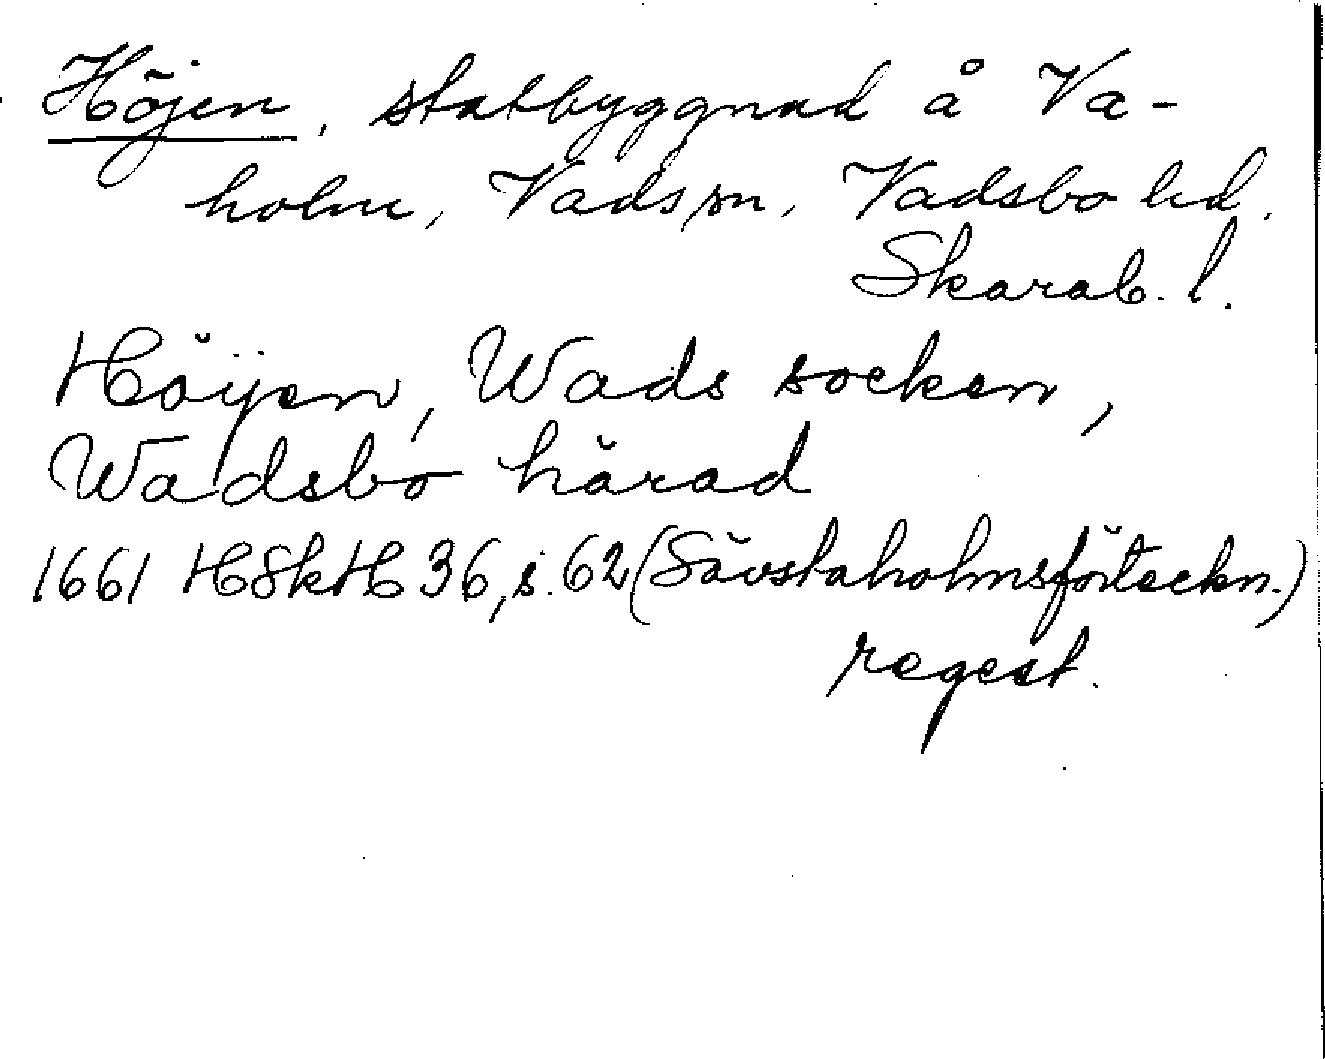 Höjen, statbyggnad å Va-
holm, Vads sn, Vadsbo hd.
Skarab. l.
Höijen, Wads socken,
Wadsbo härad
1661 HSkH 36, s. 62 (Sävstaholmsförteckn.)
regest.